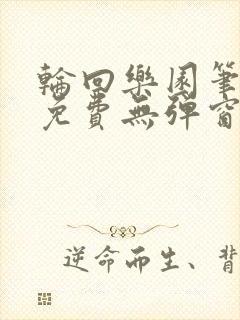 輪回樂園筆
免費無彈窗
逆命而生、背